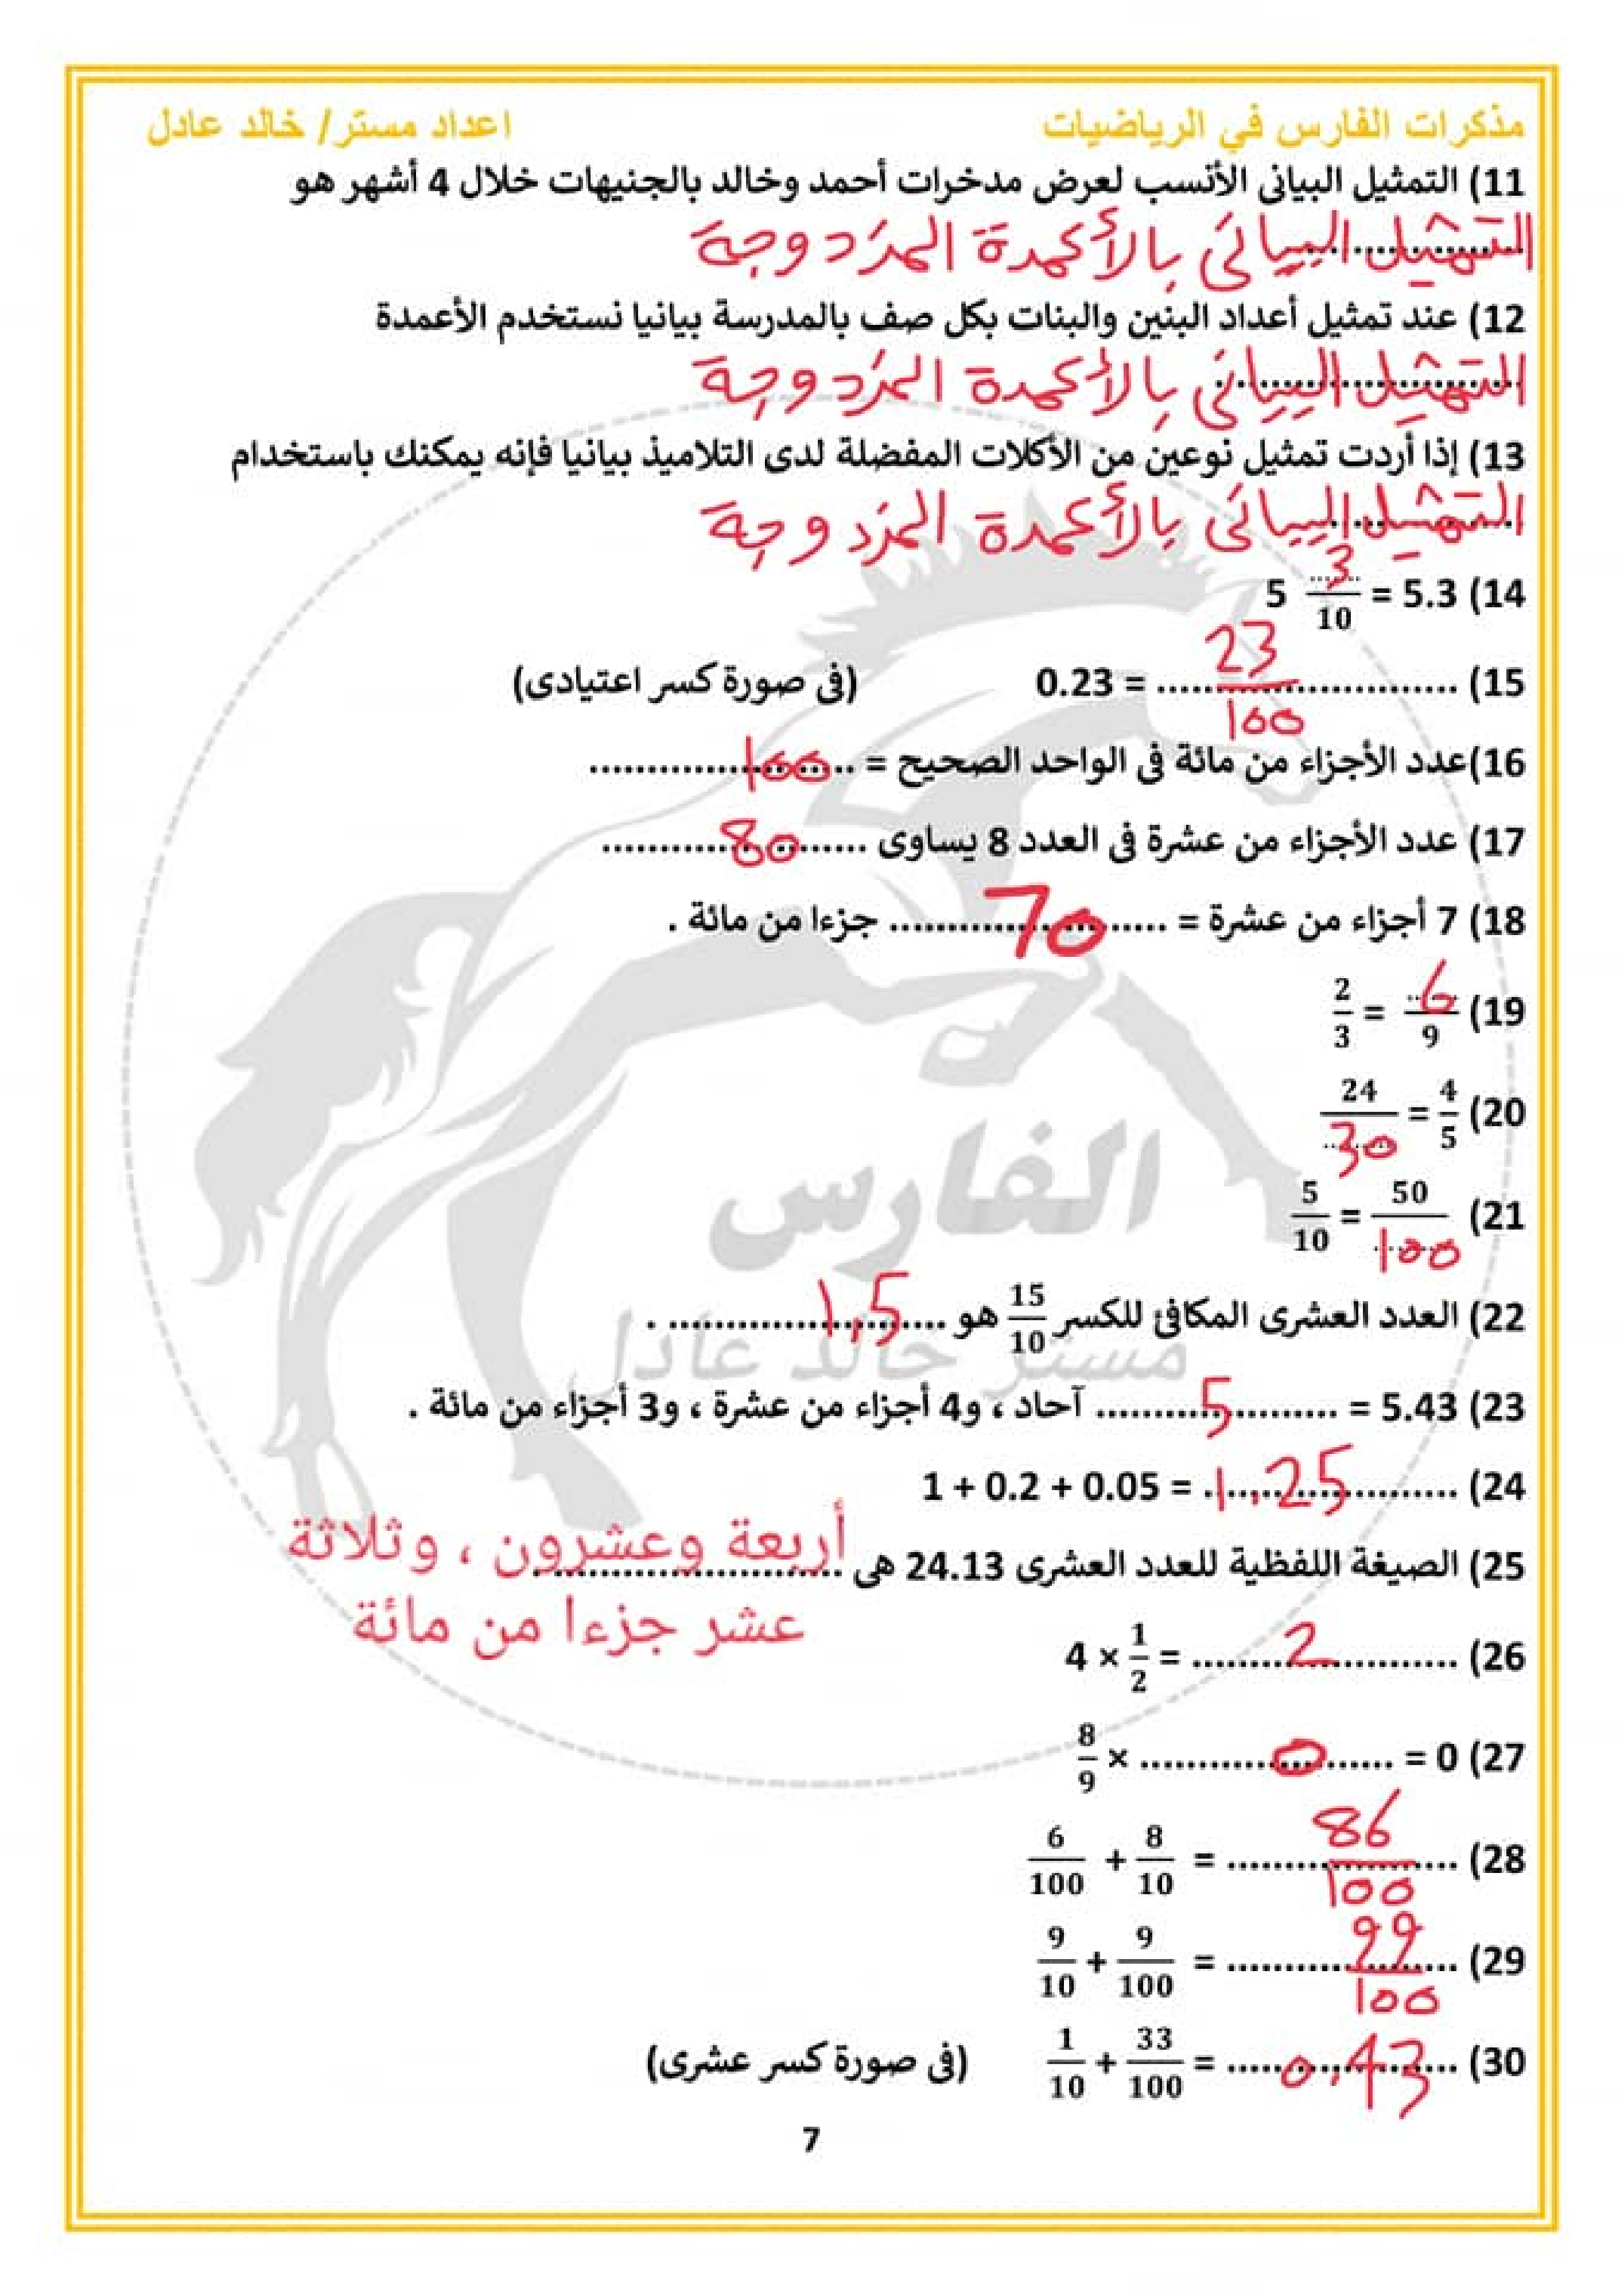 مذكرات الفارس في الرياضيات
اعداد مستر/ خالد عادل
11) التمثيل البيانى الأنسب لعرض مدخرات أحمد وخالد بالجنيهات خلال 4 أشهر هو
..................... التمثيل البيانى بالأعمدة المزدوجة
12) عند تمثيل أعداد البنين والبنات بكل صف بالمدرسة بيانيا نستخدم الأعمدة
..................... التمثيل البيانى بالأعمدة المزدوجة
13) إذا أردت تمثيل نوعين من الأكلات المفضلة لدى التلاميذ بيانيا فإنه يمكنك باستخدام
..................... التمثيل البيانى بالأعمدة المزدوجة
14) 5 3/10 = 5.3
15) 0.23 = 23/100 (فى صورة كسر اعتيادى)
16)عدد الأجزاء من مائة فى الواحد الصحيح = 100
17) عدد الأجزاء من عشرة فى العدد 8 يساوى 80
18) 7 أجزاء من عشرة = 70 جزءا من مائة .
19) 2/3 = 6/9
20) 24/30 = 4/5
21) 5/10 = 50/100
22) العدد العشرى المكافئ للكسر 15/10 هو 1,5 .
23) 5.43 = 5 آحاد ، و4 أجزاء من عشرة ، و3 أجزاء من مائة .
24) 1 + 0.2 + 0.05 = 1.25
25) الصيغة اللفظية للعدد العشرى 24.13 هى أربعة وعشرون ، وثلاثة
عشر جزءا من مائة
26) 4 × 1/2 = 2
27) 8/9 × 0 = 0
28) 6/100 + 8/10 = 86/100
29) 9/10 + 9/100 = 99/100
30) 1/10 + 33/100 = 0.43 (فى صورة كسر عشرى)
7
الفارس
مستر خالد عادل